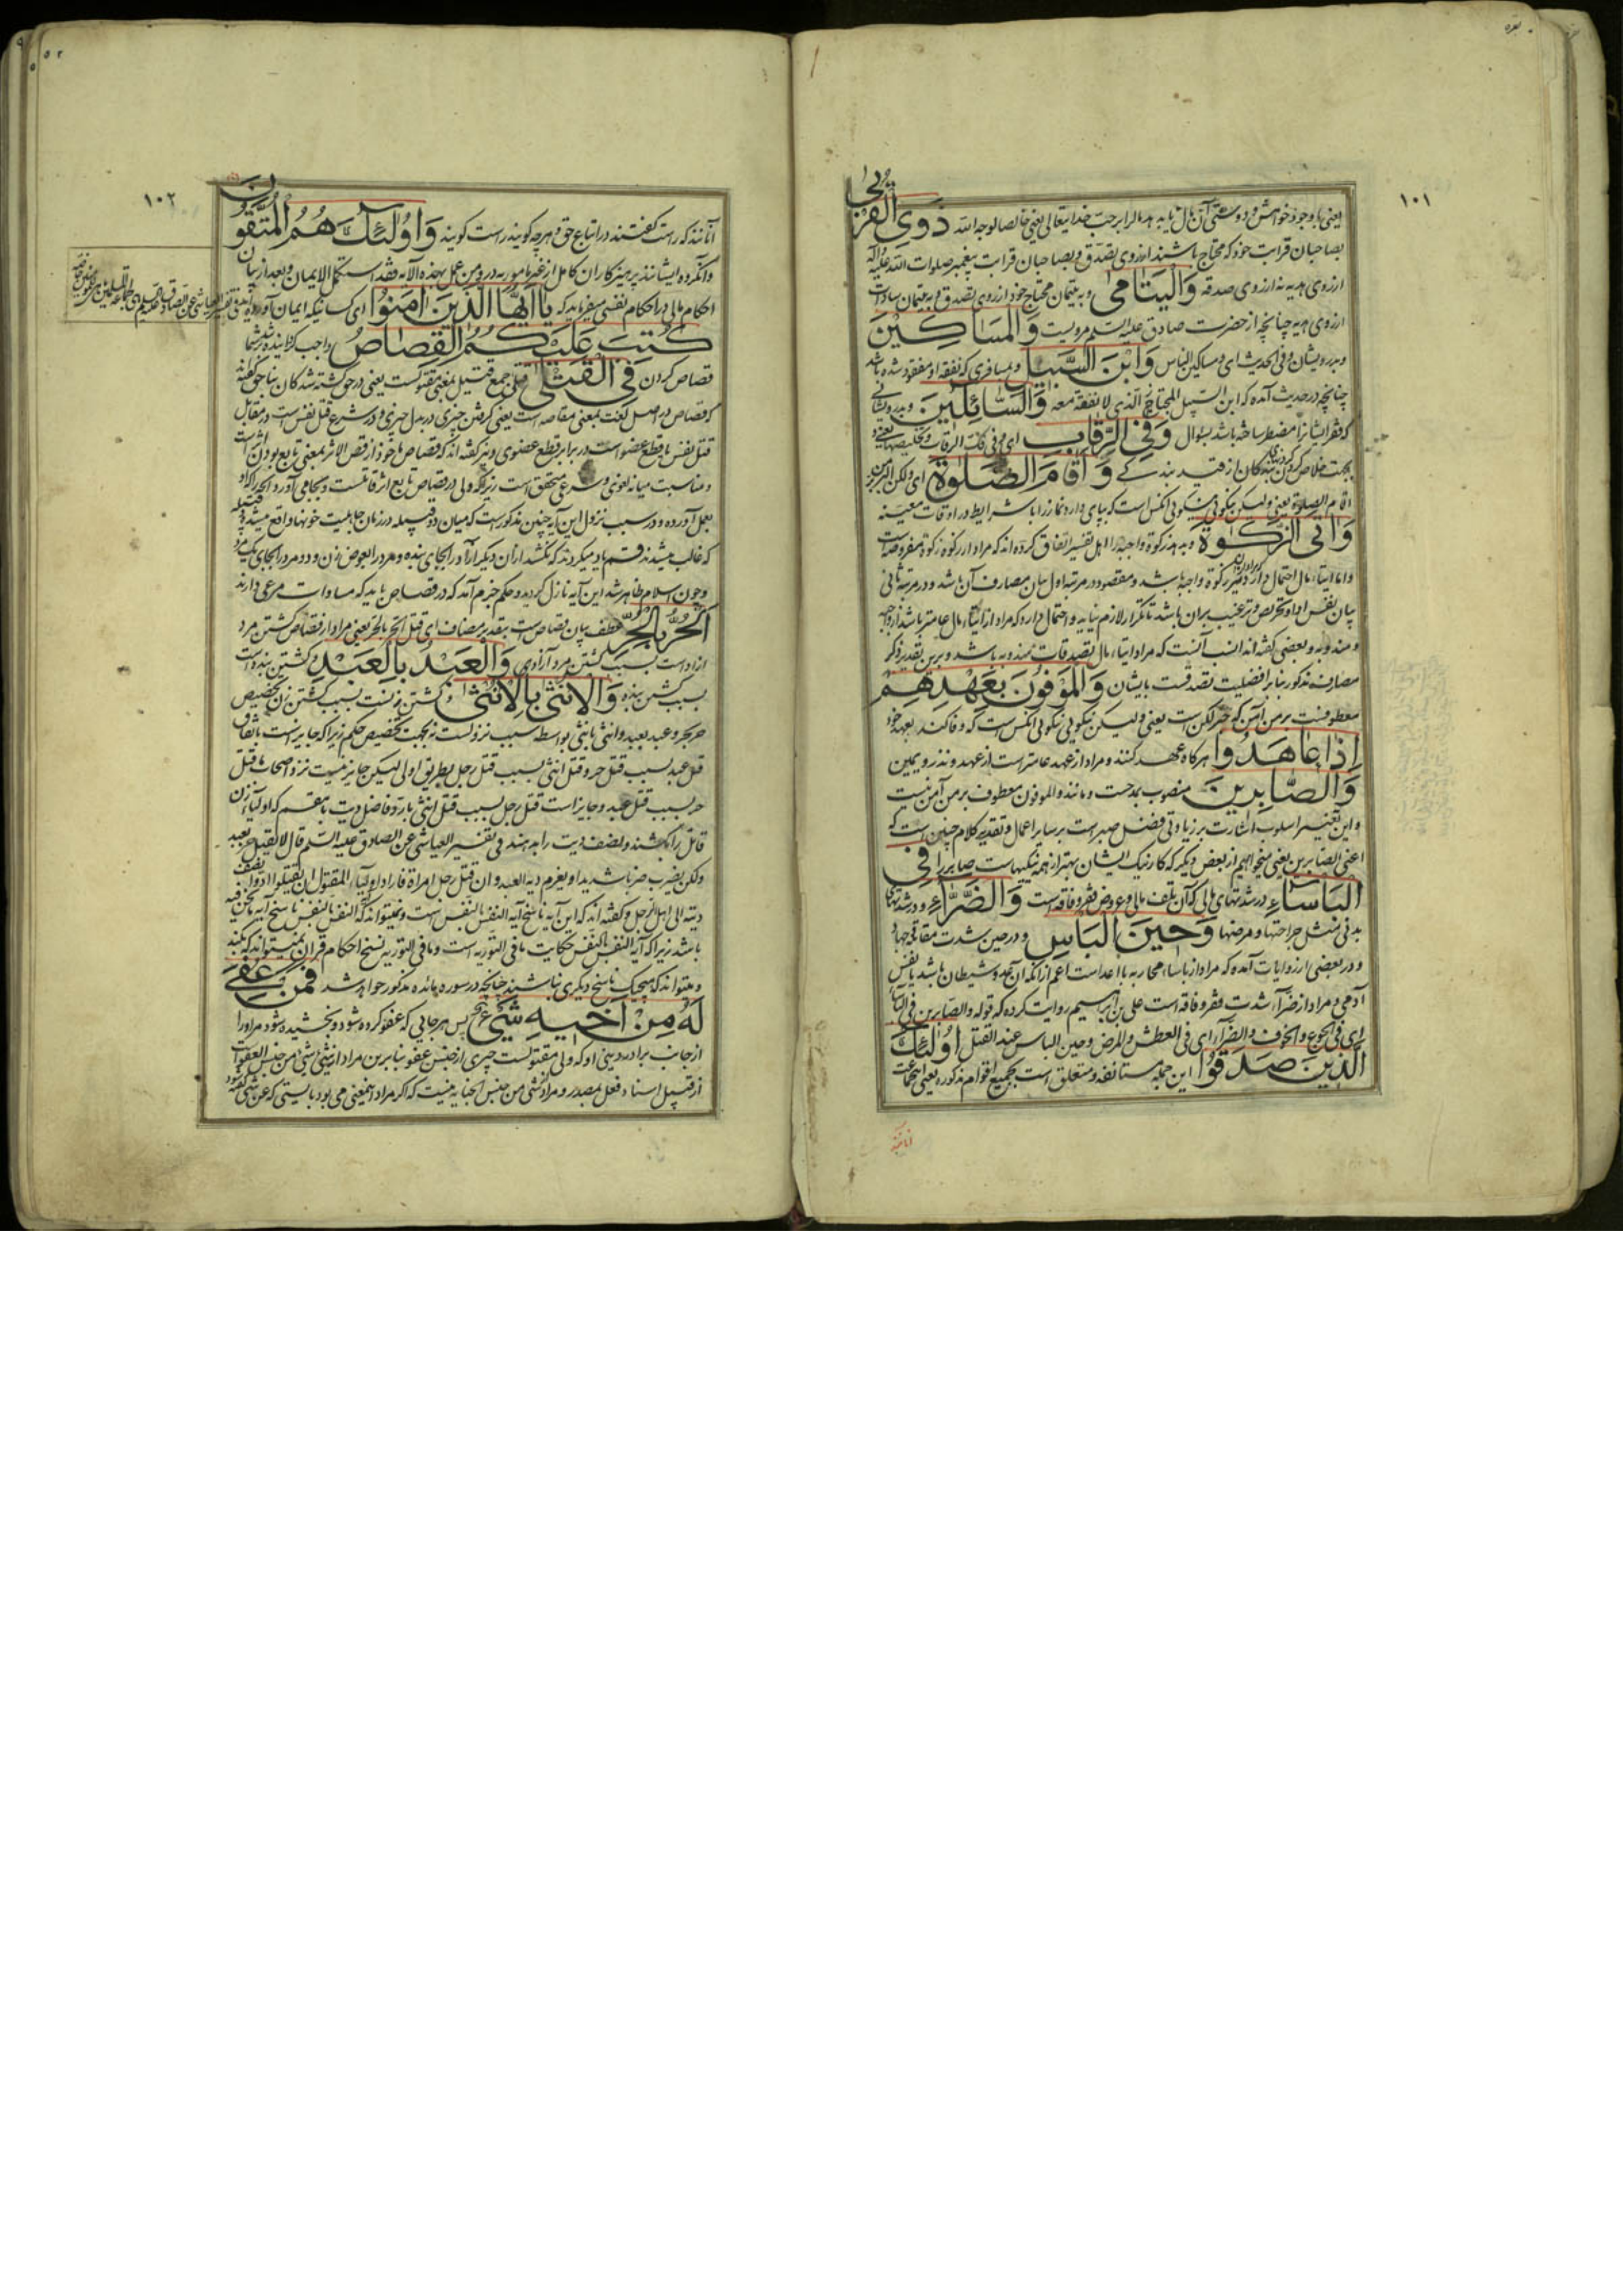 بقره
۱۰۱
یعنی با وجود خواهش و دوستی آن مال یا بدهد مال را بر حب خدایتعالی یعنی خالصا لوجه الله ذَوِی الْقُرْبٰی
بصاحبان قرابت خود که محتاج باشند از روی تصدق و بصاحبان قرابت پیغمبر صلوات الله علیه و اله
از روی هدیه نه از روی صدقه وَالْیَتَامٰی و به یتیمان محتاج خود از روی تصدق و به یتیمان سادات
از روی هدیه چنانچه از حضرت صادق علیه السلم مرویست وَالْمَسَاکِینَ
و بدرویشان و فی الحدیث ای و مساکین الناس وَابْنَ السَّبِیلِ و بمسافری که نفقه او مفقود شده باشد
چنانچه در حدیث آمده که ابن السبیل المحتاج الذی لا نفقة معه وَالسَّائِلِینَ و بدرویشانی
که فقر ایشانرا مضطر ساخته باشد بسوال وَفِی الرِّقَابِ ای و فی فک الرقاب و تخلیصها یعنی و
بجهت خلاص کردن بندکان از قید بندکی وَاَقَامَ الصَّلٰوةَ ای ولکن البر بر من
اقام الصلوة یعنی ولیکن نیکوئی نیکوئی انکس است که بپای دارد نماز را با شرایط در اوقات معینه
وَاٰتَی الزَّکٰوةَ و بدهد زکوة واجبه را اهل تفسیر اتفاق کرده اند که مراد از زکوة زکوة مفروضه است
و اما ایتاء مال احتمال دارد که مراد از ان نیز زکوة واجبه باشد و مقصود در مرتبه اول بیان مصارف آن باشد و در مرتبه ثانی
بیان نفس ادا و تحریص و ترغیب بران باشد تا تکرار لازم نیاید و احتمال دارد که مراد از ایتاء مال عامتر باشد از واجبه
و مندوبه و بعضی کفته اند انسب آنست که مراد ایتاء مال تصدقات مندوبه باشد و برین تقدیر ذکر
مصارف مذکور بنابر افضلیت تصدقست بایشان وَالْمُوفُونَ بِعَهْدِهِمْ
معطوفست بر من آمن که خبر لکن است یعنی ولیکن نیکوئی نیکوئی انکس است که وفا کند بعهد خود
اِذَا عَاهَدُوا هرکاه عهد کنند و مراد از عهد عامتر است از عهد و نذر و یمین
وَالصَّابِرِینَ منصوب بمدحست و مانند والموفون معطوف بر من آمن نیست
و این تغییر اسلوب اشارت بر زیادتی فضل صبر است بر سایر اعمال و تقدیر کلام چنین است که
اعنی الصابرین یعنی میخواهیم از بعض دیکر که کار نیک ایشان بهتر از همه نیکیهاست صابر را فِی
الْبَأْسَاءِ در شدتهای مالی که آن تلف مال و عروض فقر و فاقه است وَالضَّرَّاءِ و در شدتهای
بدنی مثل جراحتها و مرضها وَحِینَ الْبَأْسِ و در حین شدت مقاتله و جهاد
و در بعضی از روایات آمده که مراد از باساء محاربه با اعداست اعم از انکه آن عدو شیطان باشد یا نفس
آدمی و مراد از ضراء شدت فقر و فاقه است علی بن ابرهیم روایت کرده که قوله والصابرین فی البأساء
ای فی الجوع والخوف والضراء ای فی العطش والمرض وحین الباس عند القتل اُولٰئِکَ
الَّذِینَ صَدَقُوا این جمله مستانفه و متعلق است بجمیع اقوام مذکوره یعنی اینجماعت
آنانند
۱۰۲
آنانند که راست کفتند در اتباع حق و هر چه کویند راست کویند وَاُولٰئِکَ هُمُ الْمُتَّقُونَ
و انکروه ایشانند پرهیزکاران کامل از غیر مأمور به درو من عمل بهذه الایه فقد استکمل الایمان و بعد از بیان
احکام مالی در احکام نفسی میفرماید که یَا اَیُّهَا الَّذِینَ اٰمَنُوا ای کسانیکه ایمان آورده اید
کُتِبَ عَلَیْکُمُ الْقِصَاصُ واجب کردانیده شد بر شما
قصاص کردن فِی الْقَتْلٰی قتلی جمع قتیل بمعنی مقتولست یعنی در حق کشته شدکان بناحق کفته اند
که قصاص در اصل لغت بمعنی مقاصه است یعنی کرفتن چیزی در بدل چیزی و در شرع قتل نفس است در مقابل
قتل نفس یا قطع عضو است در برابر قطع عضوی و نیز کفته اند که قصاص ماخوذ از قص الاثر بمعنی تابع بودن اثر است
و مناسبت میانه لغوی و شرعی متحقق است زیرا که ولی در قصاص تابع اثر قاتلست و بجا می آورد انچه را که او
بعمل آورده و در سبب نزول این آیه چنین مذکور است که میان دو قبیله در زمان جاهلیت خونها واقع میشد و قبیله
که غالب میشدند قسم یاد میکردند که بکشند از ان دیکر آزاد را بجای بنده و مرد را بعوض زن و دو مرد را بجای یک مرد
و چون اسلام ظاهر شد این آیه نازل کردید و حکم جزم آمد که در قصاص باید که مساوات مرعی دارند
اَلْحُرُّ بِالْحُرِّ عطف بیان قصاص است بتقدیر مضاف ای قتل الحر بالحر یعنی مراد از قصاص کشتن مرد
ازاد است بسبب کشتن مرد آزادی وَالْعَبْدُ بِالْعَبْدِ و کشتن بنده است
بسبب کشتن بنده وَالْاُنْثٰی بِالْاُنْثٰی و کشتن زنست بسبب کشتن زن تخصیص
حر بحر و عبد بعبد و انثی بانثی بواسطه سبب نزولست نه بجهت تخصیص حکم زیرا که جایز است باتفاق
قتل عبد بسبب قتل حر و قتل انثی بسبب قتل رجل بطریق اولی لیکن جایز نیست نزد اصحاب ما قتل
حر بسبب قتل عبد و جایز است قتل رجل بسبب قتل انثی با رد فاضل دیت باینقسم که اولیاء زن
قاتل را بکشند و نصف دیت را بدهند فی تفسیر العیاشی عن الصادق علیه السلم قال لا یقتل حر بعبد
ولکن یضرب ضربا شدیدا و یغرم دیه العبد و ان قتل رجل امراة فاراد اولیاء المقتول ان یقتلوا ادوا نصف
دیته الی اهل الرجل و کفته اند که این آیه ناسخ آیه النفس بالنفس است و نمیتواند که النفس بالنفس ناسخ آیه ما نحن فیه
باشد زیرا که آیه النفس بالنفس حکایت ما فی التوریه است و ما فی التوریه نسخ احکام قران نمیتواند که بکند
و میتواند که هیچیک ناسخ دیکری نباشند چنانچه در سوره مائده مذکور خواهد شد فَمَنْ عُفِیَ
لَهُ مِنْ اَخِیهِ شَیْءٌ پس هر جانی که عفو کرده شود و بخشیده شود مر او را
از جانب برادر دینی او که ولی مقتولست چیزی از جنس عفو بنابرین مراد از شیء شیء من جنس العفو است
از قبیل اسناد فعل بمصدر و مراد شیء من جنس الجنایه نیست که اکر مراد اینمعنی می بود بایستی که عن شیء کفته شود